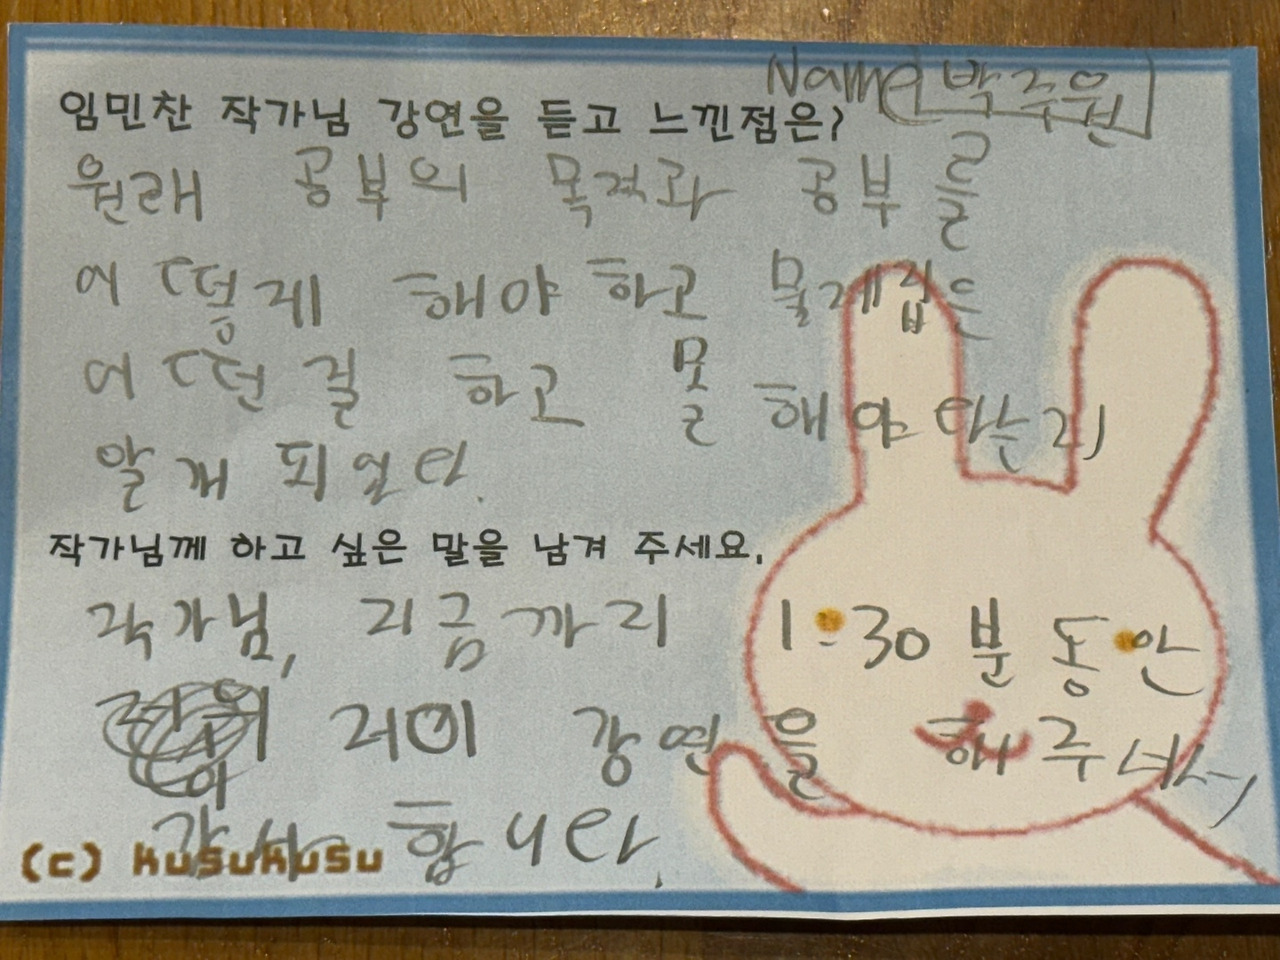 Name 박주원
임민찬 작가님 강연을 듣고 느낀점은?
원래 공부의 목적과 공부를
어떻게 해야 하고 몰레캅은
어떤걸 하고 못 해야
알게 되었다.
작가님께 하고 싶은 말을 남겨 주세요.
작가님, 지금까지 1:30분 동안
강연을 해주셔서
감사 합니다.
(c) kusukusu